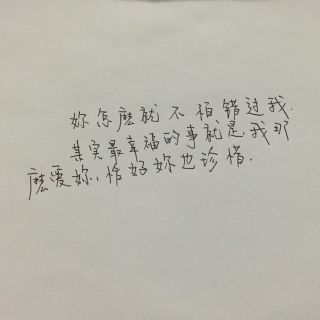 妳怎麽就不怕错过我.
其实最幸福的事就是,我那
麽爱妳,恰好妳也珍惜.